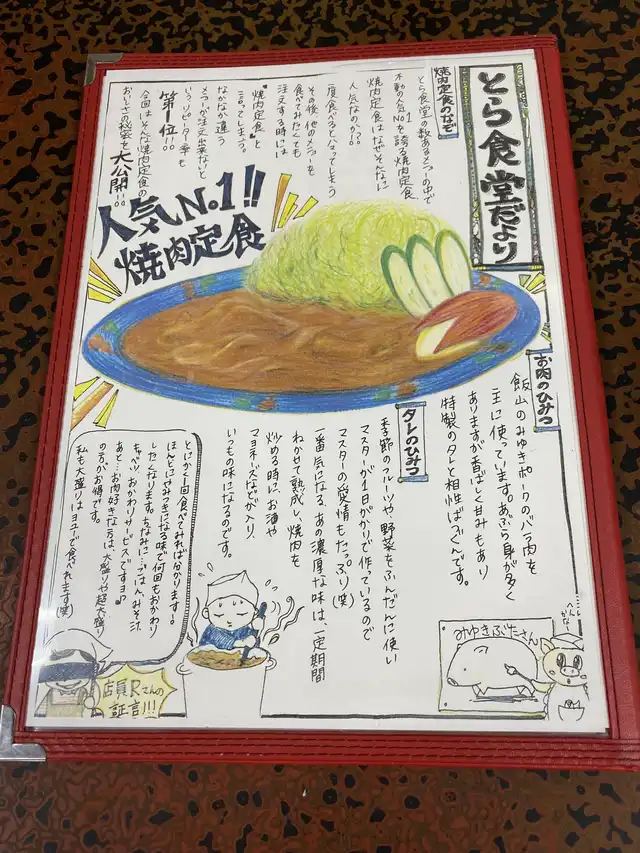 とら食堂だより
焼肉定食のなぞ
とら食堂の数あるメニューの中で
不動の人気No.1を誇る焼肉定食
焼肉定食はなぜそんなに
人気なのか??
一度食べるとなってしまう
その後他のメニューを
食べてみたくても
注文する時には
“焼肉定食”と
言ってしまう。
なかなか違う
メニューが注文出来ないと
いう、リピーター率も
第1位!!
今回はそんな焼肉定食の
おいしさの秘密を大公開!!
人気No.1!!
焼肉定食
お肉のひみつ
飯山のみゆきポークのバラ肉を
主に使っています。あぶら身が多く
ありますが香ばしく甘みもあり
特製のタレと相性ばつぐんです。
タレのひみつ
季節のフルーツや野菜をふんだんに使い
マスターが1日がかりで作っているので
マスターの愛情もたっぷり(笑)
一番気になる、あの濃厚な味は、一定期間
ねかせて熟成し、焼肉を
炒める時に、お酒や
マヨネーズなどが入り、
いつもの味になるのです。
とにかく1回食べてみれば分かります!
ほんとにやみつきになる味で何回もおかわり
したくなります。ちなみに…ごはん、みそ汁、
キャベツ、おかわりサービスですヨ!?
あと…お肉好きな方は、大盛りや超大盛り
の方がお得です。
私も大盛りはヨユーで食べれます(笑)
店員Rさんの
証言!!!
みゆきぶたさん
へんかなー